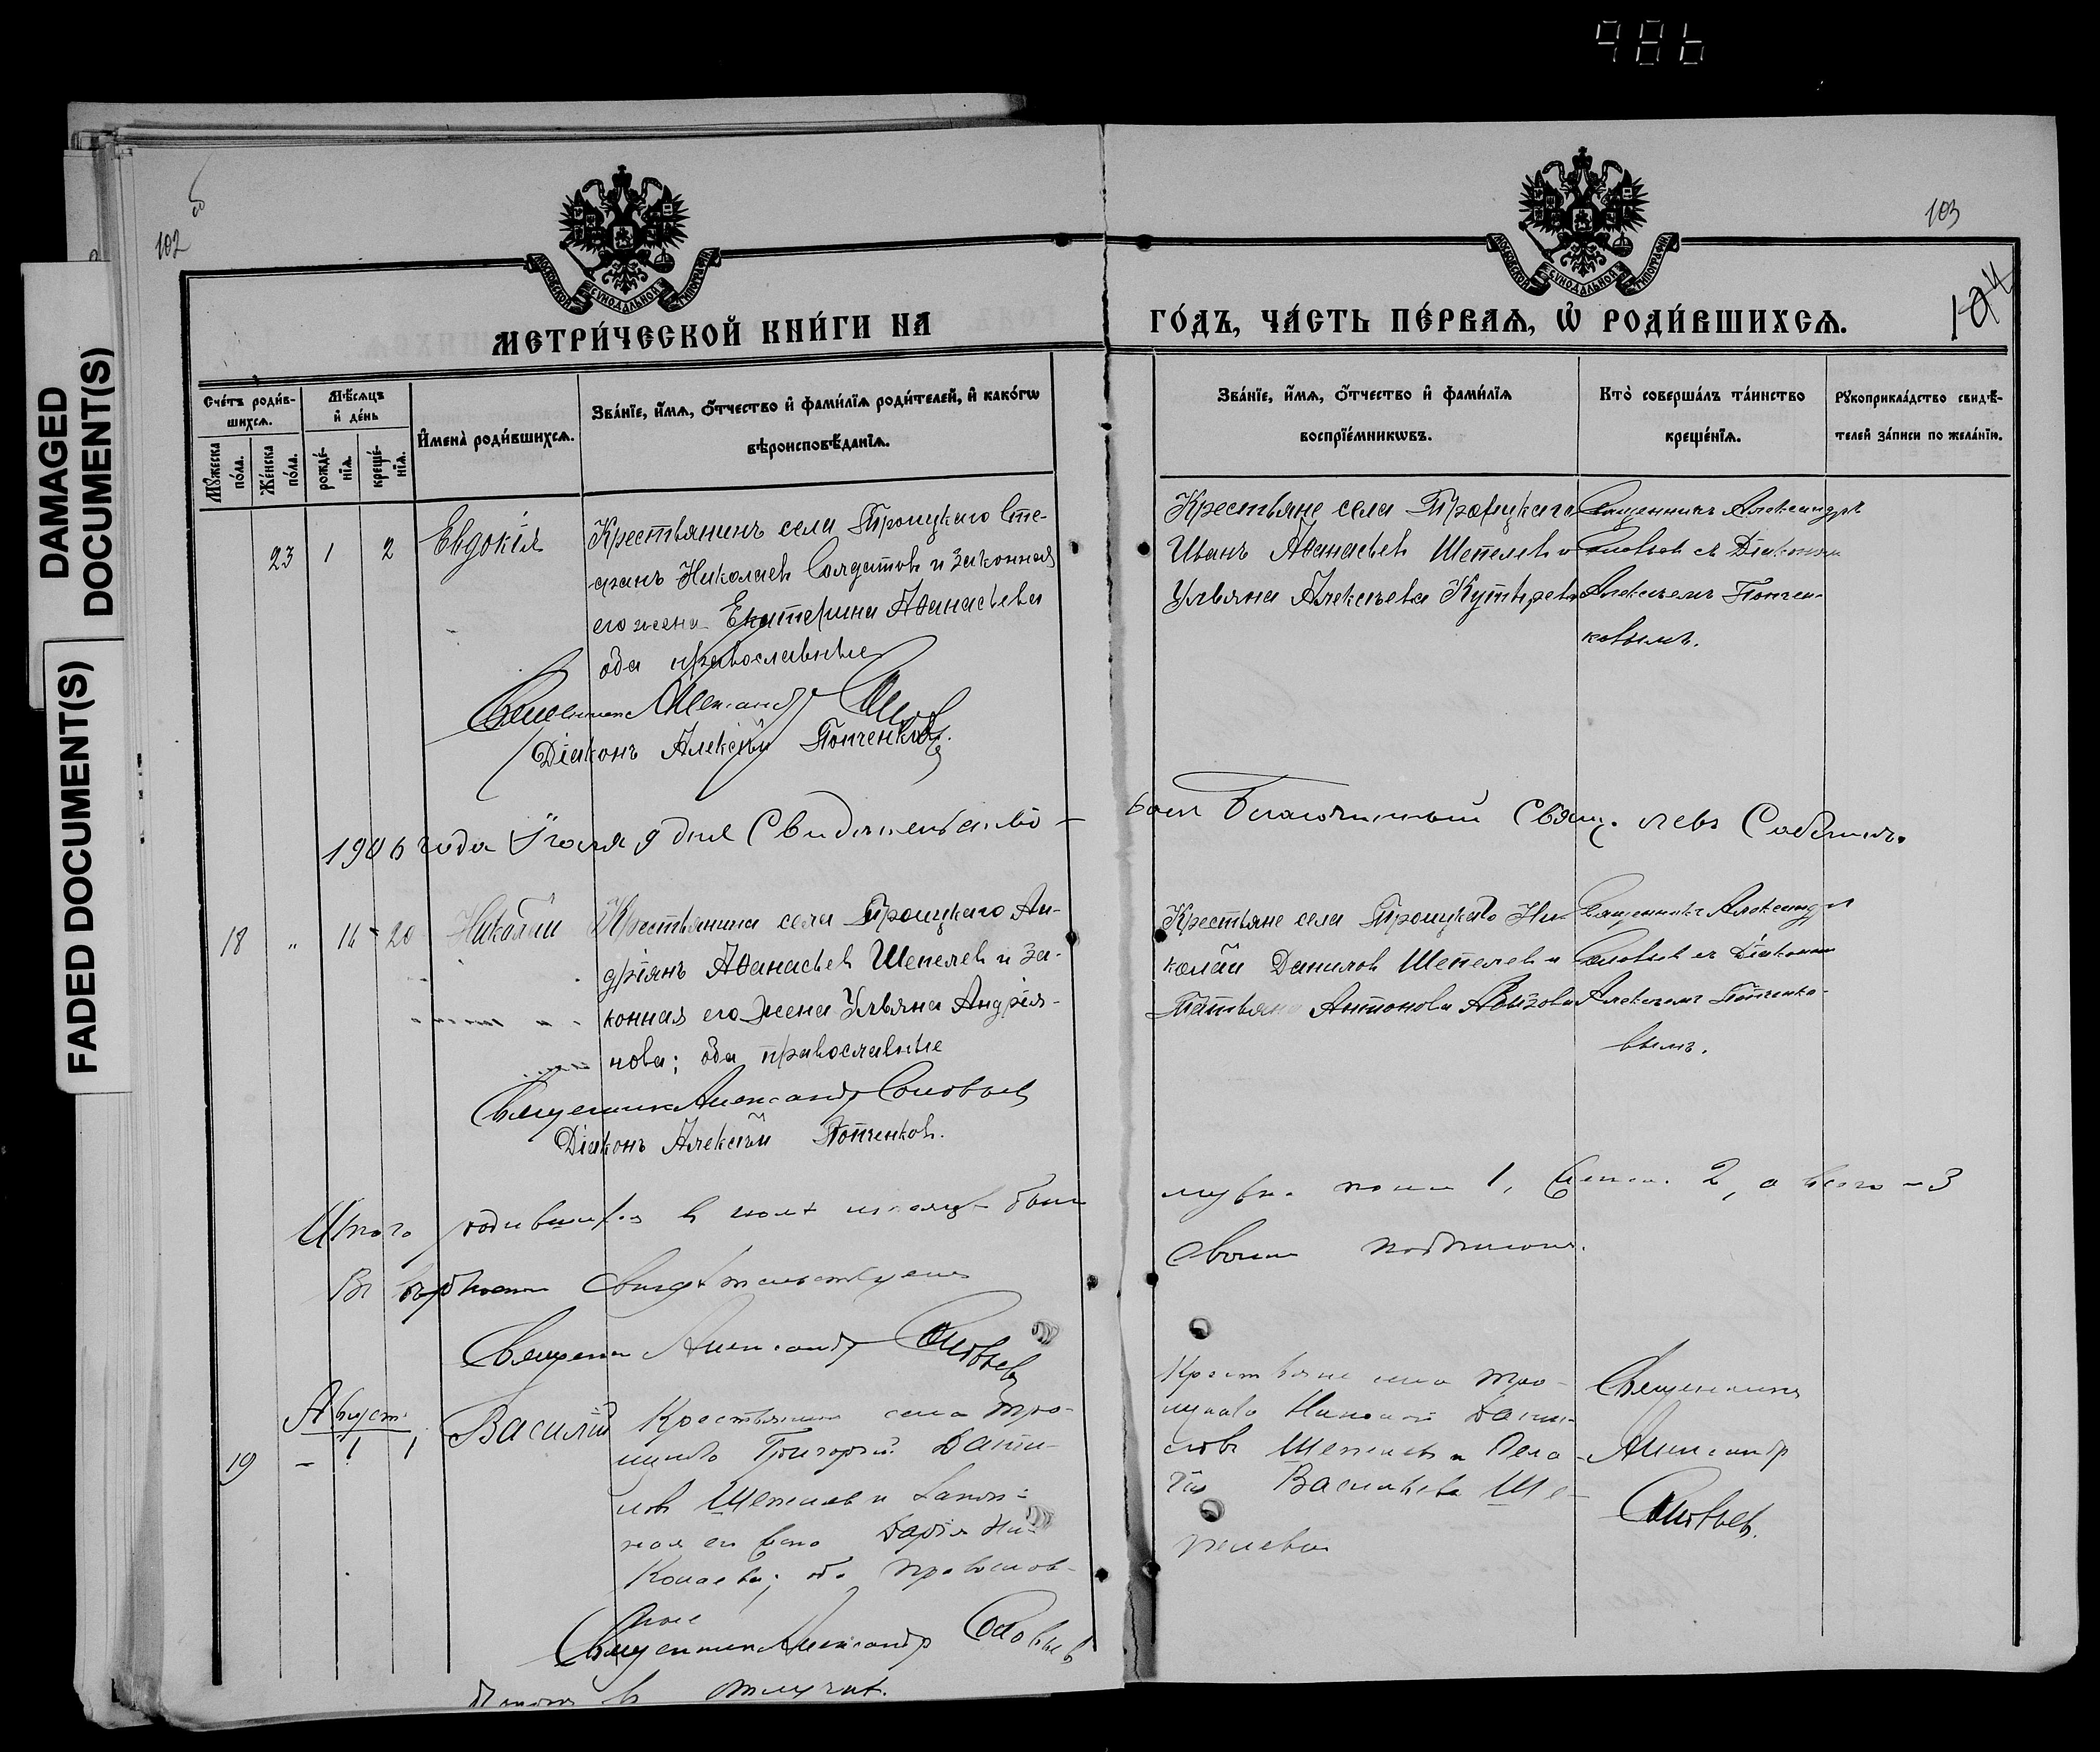 986
DAMAGED
DOCUMENT(S)
FADED DOCUMENT(S)
102
103
104
МОСКОВСКОЙ СѴНОДАЛЬНОЙ ТИПОГРАФІИ
МОСКОВСКОЙ СѴНОДАЛЬНОЙ ТИПОГРАФІИ
МЕТРИ́ЧЕСКОЙ КНИ́ГИ НА
ГО́ДЪ, ЧА́СТЬ ПЕ́РВАѦ, Ѡ҆ РОДИ́ВШИХСѦ.
Сче́тъ роди́в-
шихсѧ.
Мѣ́сѧцъ
и҆ де́нь
Мꙋ́жеска
по́ла.
Же́нска
по́ла.
рожде́-
нїѧ.
креще́-
нїѧ.
И҆мена̀ роди́вшихсѧ.
Зва́нїе, и҆́мѧ, ѻ҆́тчество и҆ фами́лїѧ роди́телей, и҆ како́гѡ
вѣроисповѣ́данїѧ.
Зва́нїе, и҆́мѧ, ѻ҆́тчество и҆ фами́лїѧ
воспрїе́мникѡвъ.
Кто̀ соверша́лъ та́инство
креще́нїѧ.
Рꙋкоприкла́дство свидѣ́-
телей за́писи по жела́нїю.
23 1 2 Евдокія
Крестьянинъ села Троицкаго Сте-
фанъ Николаев Солдатов и законная
его жена Екатерина Аѳанасьева
оба православные
Священник Александр
Діаконъ Алексѣй Попченков.
Крестьяне села Троицкаго
Иванъ Аѳанасьев Шепелев и
Ульяна Алексѣева
Священникъ Александръ
Соловьев съ Діаконом
Алексѣемъ Попчен-
ковымъ.
1906 года Іюля 9 дня Свидѣтельство-
вал Благочинный Свящ. Левъ
18 " 16 20 Николай
Крестьянинъ села Троицкаго Ан-
дріянъ Аѳанасьев Шепелев и за-
конная его жена Ульяна Андрія-
нова; оба православные
Священник Александр Соловьев
Діаконъ Алексѣй Попченков.
Крестьяне села Троицкаго Ни-
колай Данилов Шепелев и
Татьяна Антонова
Священникъ Александръ
Соловьев съ Діаконом
Алексѣемъ Попченко-
вымъ.
Итого родившихся в іюлѣ мѣсяцѣ было
муж. пола 1, женск. 2, а всего - 3
Въ вѣрности свидѣтельствуем
своим подписом.
Священник Александр Соловьев
Август
19 - 1 1 Василій
Крестьянин села Трo-
ицкаго Григорій Дани-
лов Шепелев и закон-
ная его жена Дарія Ни-
колаева; оба православ-
ные
Священник Александр Соловьев
Діакон в отлучкѣ.
Крестьяне села Трo-
ицкаго Николай Дани-
лов Шепелев и Пела-
гія Васильева Ше-
пелева
Священник
Александр
Соловьев.